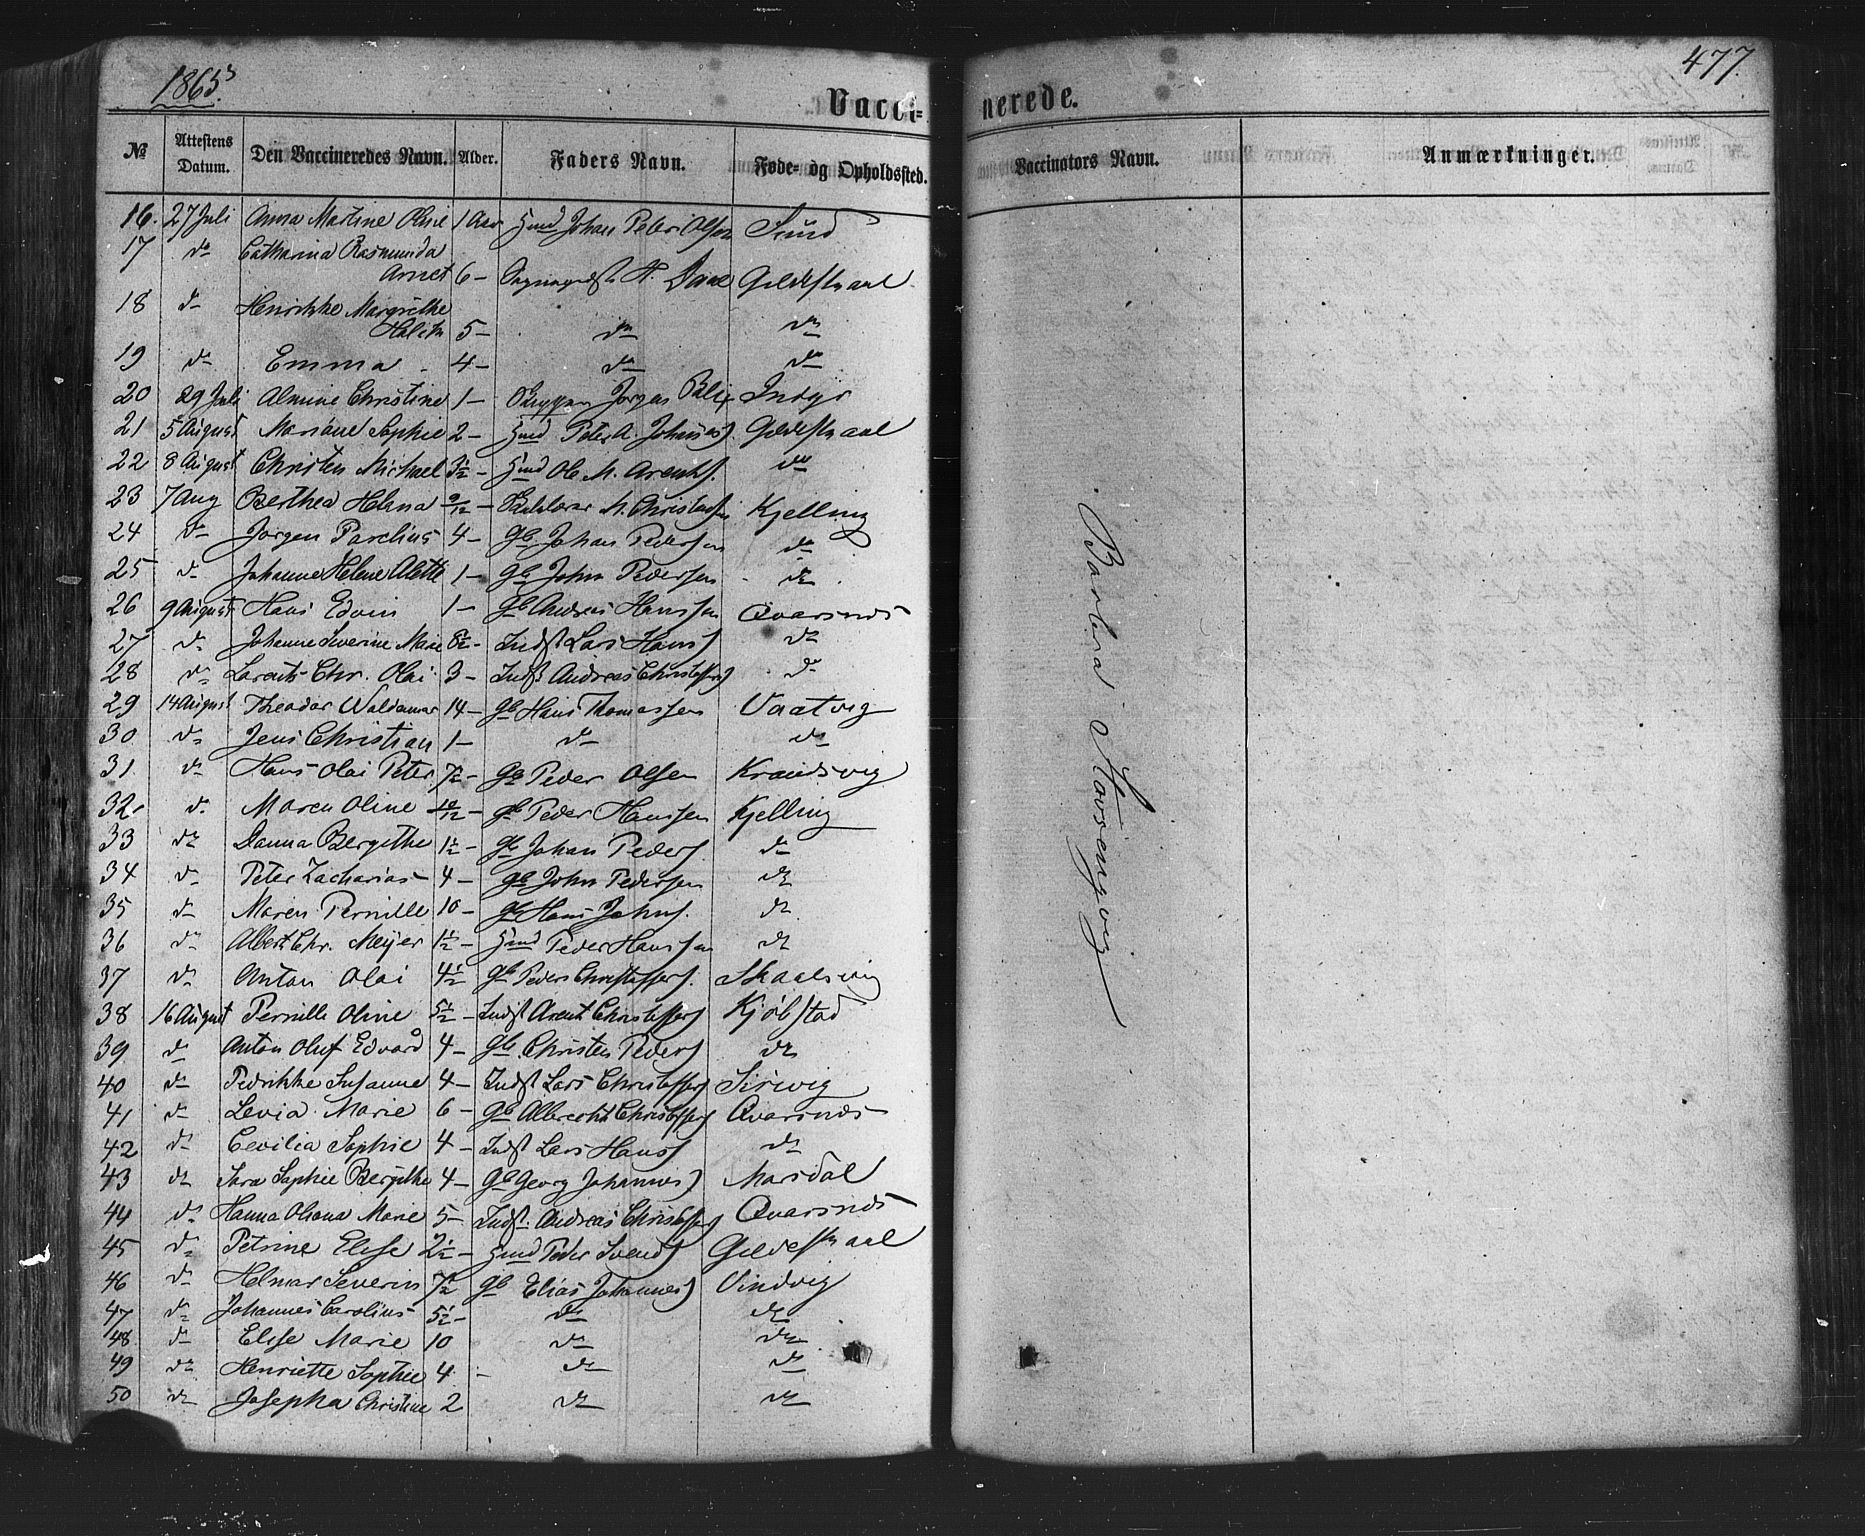 1865.
477.
Vacci-
nerede.
№ Attestens Datum. Den Vaccineredes Navn. Alder. Faders Navn. Føde- og Opholdssted. Vaccinators Navn. Anmærkninger.
16. 27 Juli Anna Martine Oline 1 Aar Hmd Johan Peter Olsen Sund
17 do Catharina Rasmunda
Arnet 6 - Sogneprest H. Daae Gildeskaal
18 do Henrikke Margrethe
5 - do do
19 do Emma - 4 - do do
20 29 Juli Almine Christine 1 - Jørgen Blix Indyr
21 5 August Mariane Sophie 2 - Hmd Peter A. Johans) Gildeskaal
22 8 August Christen Michael 3½ - Hmd Ole M. Arents. do
23 7 Aug Berthea Helena 9/12 - M. Christens Kjelling
24 do Jørgen Parelius 4 - Gb. Johan Pedersen do
25 do Johanne Helene Alette 1 - Gb John Pedersen do
26 9 August Hans Edvin 1 - Gb Andreas Hanssen Qvarsnes
27 do Johanne Severine Marie 8½ - Indst Lars Hans) do
28 do Larents Chr. Olai 3 - Indst Andreas Christoffers) do
29 14 August Theodor Waldemar 14 - Gb Hans Thomassen Vaatvig
30 do Jens Christian 1 - do do
31 do Hans Olai Peter 7½ - Gb Peder Olsen Krandsvig
32 do Maren Oline 10/12 - Gb Peder Hanssen Kjelling
33 do Danna Bergithe 1½ - Gb Johan Peders do
34 do Peter Zacharias 4 - Gb John Pedersen do
35 do Maren Pernille 10 - Gb Hans Johns. do
36 do Albert Chr. Meyer 1½ - Hmd Peder Hanssen do
37 do Anton Olai 4½ - Gb Peder Christoffers. Skaalsvig
38 16 August Pernille Oline 5½ - Indst Arent Christoffers) Kjøbstad
39 do Anton Oluf Edvard 4 - Gb. Christen Peders) do
40 do Pedrikke Susanne 4 - Indst Lars Christoffers) Sørvig
41 do Levia Marie 6 - Gb Albrecht Christoffers) Qvarsnes
42 do Cecilia Sophie 4 - Indst Lars Hans) do
43 do Sara Sophie Bergithe 4 - Gb Georg Johannes) Marsdal
44 do Hanna Olsana Marie 5 - Indst. Andreas Christoffers) Qvarsnes
45 do Petrine Elise 2½ - Hmd Peder Svends) Gildeskaal
46 do Helmar Severin 7½ Gb Elias Johannes) Vindvig
47 do Johannes Carolius 5½ - do do
48 do Elise Marie 10 do do
49 do Henriette Sophie 4 - do do
50 do Josepha Christine 2 do do
Barbra Storengvig